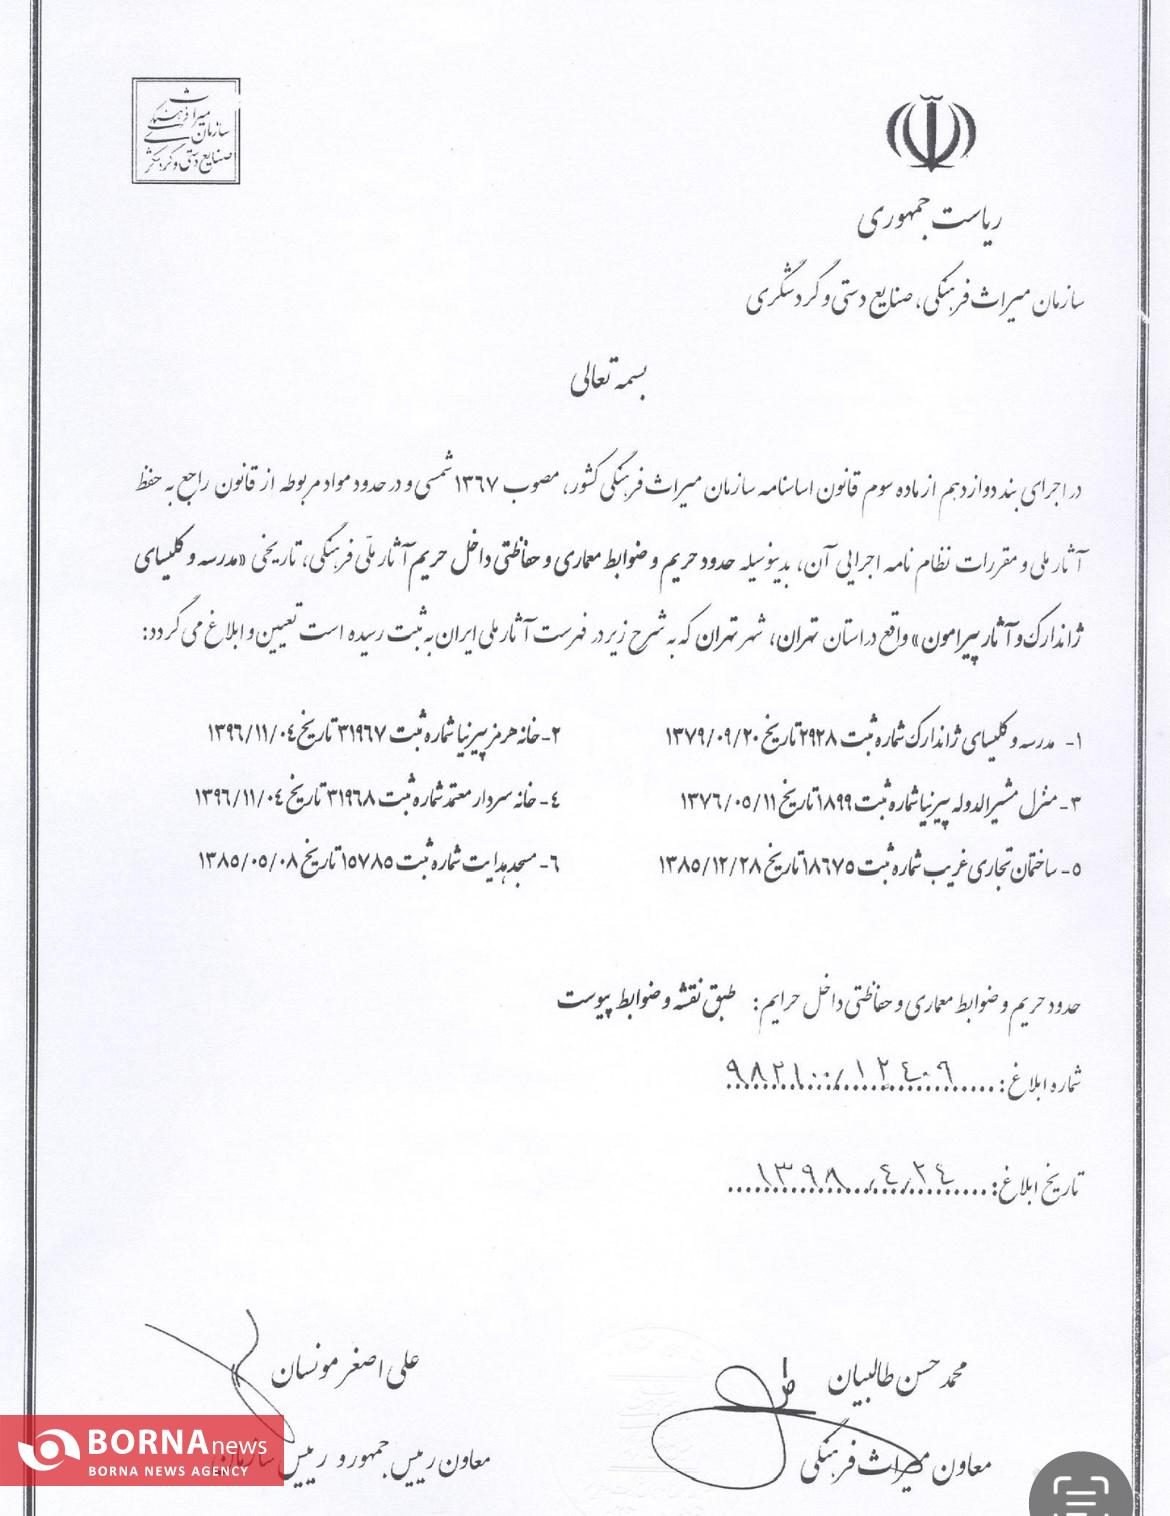 سازمان میراث فرهنگی
صنایع دستی و گردشگری
ریاست جمهوری
سازمان میراث فرهنگی، صنایع دستی و گردشگری
بسمه تعالی
در اجرای بند دوازدهم از ماده سوم قانون اساسنامه سازمان میراث فرهنگی کشور، مصوب ۱۳۶۷ شمسی و در حدود مواد مربوطه از قانون راجع به حفظ
آثار ملی و مقررات نظام نامه اجرایی آن، بدینوسیله حدود حریم و ضوابط معماری و حفاظتی داخل حریم آثار ملّی فرهنگی، تاریخی «مدرسه و کلیسای
ژاندارک و آثار پیرامون» واقع در استان تهران، شهر تهران که به شرح زیر در فهرست آثار ملی ایران به ثبت رسیده است تعیین و ابلاغ می گردد:
۱- مدرسه و کلیسای ژاندارک شماره ثبت ۲۹۲۸ تاریخ ۱۳۷۹/۰۹/۲۰
۲- خانه هرمز پیرنیا شماره ثبت ۳۱۹۶۷ تاریخ ۱۳۹۶/۱۱/۰۴
۳- منزل مشیرالدوله پیرنیا شماره ثبت ۱۸۹۹ تاریخ ۱۳۷۶/۰۵/۱۱
۴- خانه سردار معتمد شماره ثبت ۳۱۹۶۸ تاریخ ۱۳۹۶/۱۱/۰۴
۵- ساختمان تجاری غریب شماره ثبت ۱۸۶۷۵ تاریخ ۱۳۸۵/۱۲/۲۸
۶- مسجد هدایت شماره ثبت ۱۵۷۸۵ تاریخ ۱۳۸۵/۰۵/۰۸
حدود حریم و ضوابط معماری و حفاظتی داخل حرایم: طبق نقشه و ضوابط پیوست
شماره ابلاغ: ۹۸۲۱۰۰/۱۲۴۰۶
تاریخ ابلاغ: ۱۳۹۸/۴/۲۴
محمد حسن طالبیان
معاون میراث فرهنگی
علی اصغر مونسان
معاون رییس جمهور و رییس سازمان
BORNA news
BORNA NEWS AGENCY